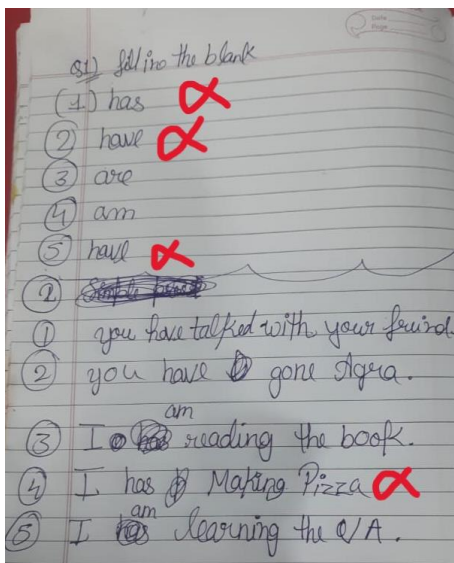 Date
Page
Q1) fill ino the blank
(1) has
2 have
3 are
4 am
5 have
2
1 you have talked with your fruind.
2 you have gone Agra.
am
3 I reading the book.
4 I has Making Pizza
am
5 I learning the Q/A.